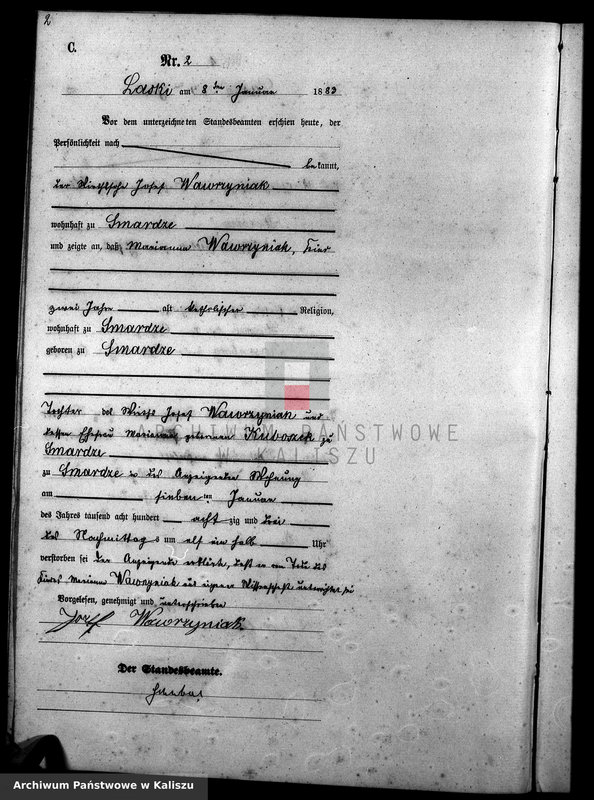 2
C.
Nr. 2
Laski am 8ten Januar 1883
Vor dem unterzeichneten Standesbeamten erschien heute, der
Persönlichkeit nach
bekannt,
der Wirth Josef Wawrzyniak
wohnhaft zu Smardze
und zeigte an, daß Marianna Wawrzyniak, Kind
zwei Jahre alt katholischer Religion,
wohnhaft zu Smardze
geboren zu Smardze
Tochter des Wirths Josef Wawrzyniak und
dessen Ehefrau Marianna geborenen zu
Smardze
ARCHIWUM PAŃSTWOWE
W KALISZU
zu Smardze in des Anzeigenden Wohnung
am siebenten Januar
des Jahres tausend acht hundert achtzig und drei
des Nachmittags um elf ein halb Uhr
verstorben sei Der Anzeigende erklärte, daß er vom Tode des
Kindes Marianna Wawrzyniak aus eigener Wissenschaft unterrichtet sei
Vorgelesen, genehmigt und unterschrieben
Jozef Wawrzyniak
Der Standesbeamte.
Archiwum Państwowe w Kaliszu